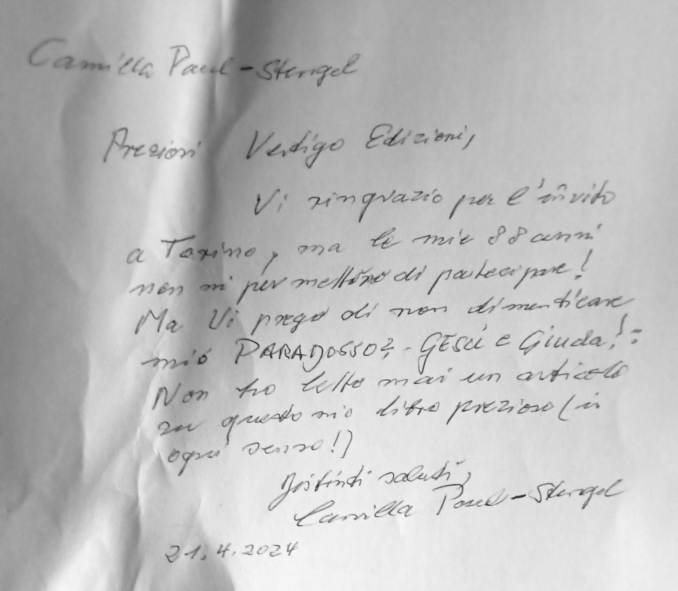 Camilla Paul-Stengel
Preziosi Vertigo Edizioni,
Vi ringrazio per l'invito
a Torino, ma le mie 88 anni
non mi permettono di partecipare!
Ma Vi prego di non dimenticare
mió PARADOSSO? - GESÙ e Giuda!:
Non ho letto mai un articolo
su questo mio libro prezioso (in
ogni senso!)
Distinti saluti,
Camilla Paul-Stengel
21.4.2024